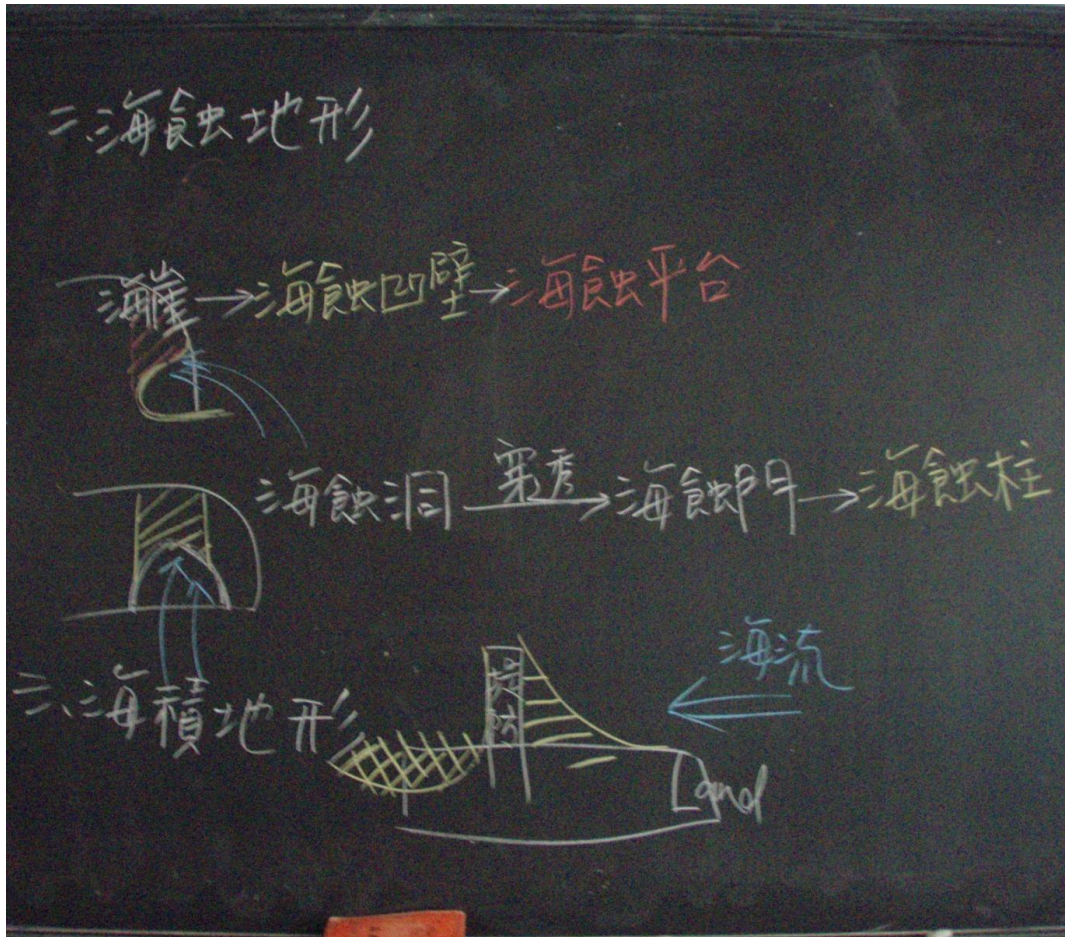 二、海蝕地形
海崖→海蝕凹壁→海蝕平台
海蝕洞 穿透→ 海蝕門→海蝕柱
海流
三、海積地形
堤防
Land